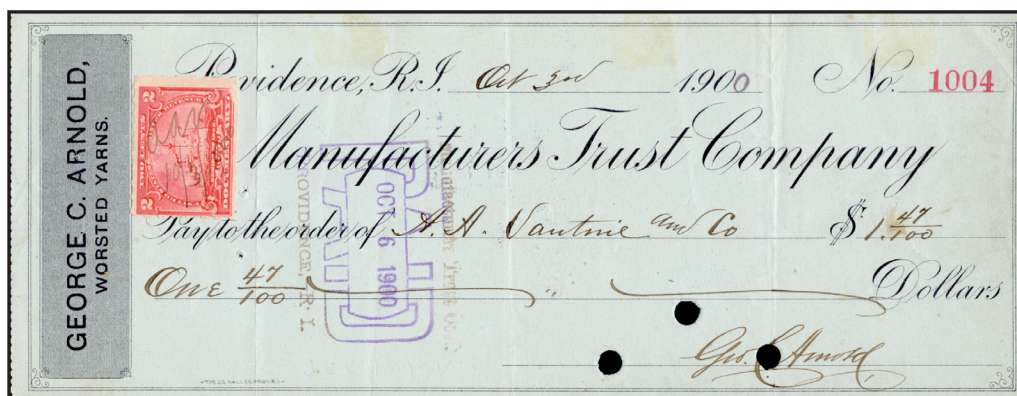 GEORGE C. ARNOLD,
WORSTED YARNS.
Providence, R.I. Oct 3rd 1900 No. 1004
Manufacturers Trust Company
Pay to the order of A. A. Vantine and Co $ 1.47/100
One 47/100 Dollars
Geo. C. Arnold
PAID
OCT 6 1900
Manufacturers Trust Co.
PROVIDENCE, R. I.
2 2